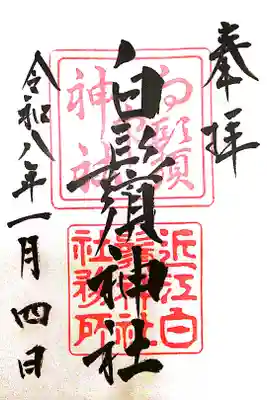 奉拝
白鬚神社
令和八年一月四日
白鬚神社
近江白鬚神社社務所